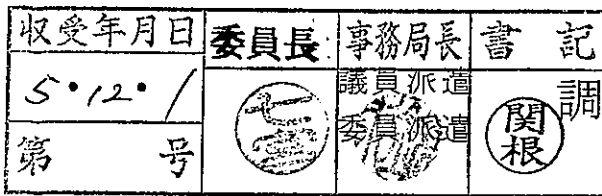 収受年月日 委員長 事務局長 書記
5・12・1
議員派遣
調
委員派遣
第 号
関根